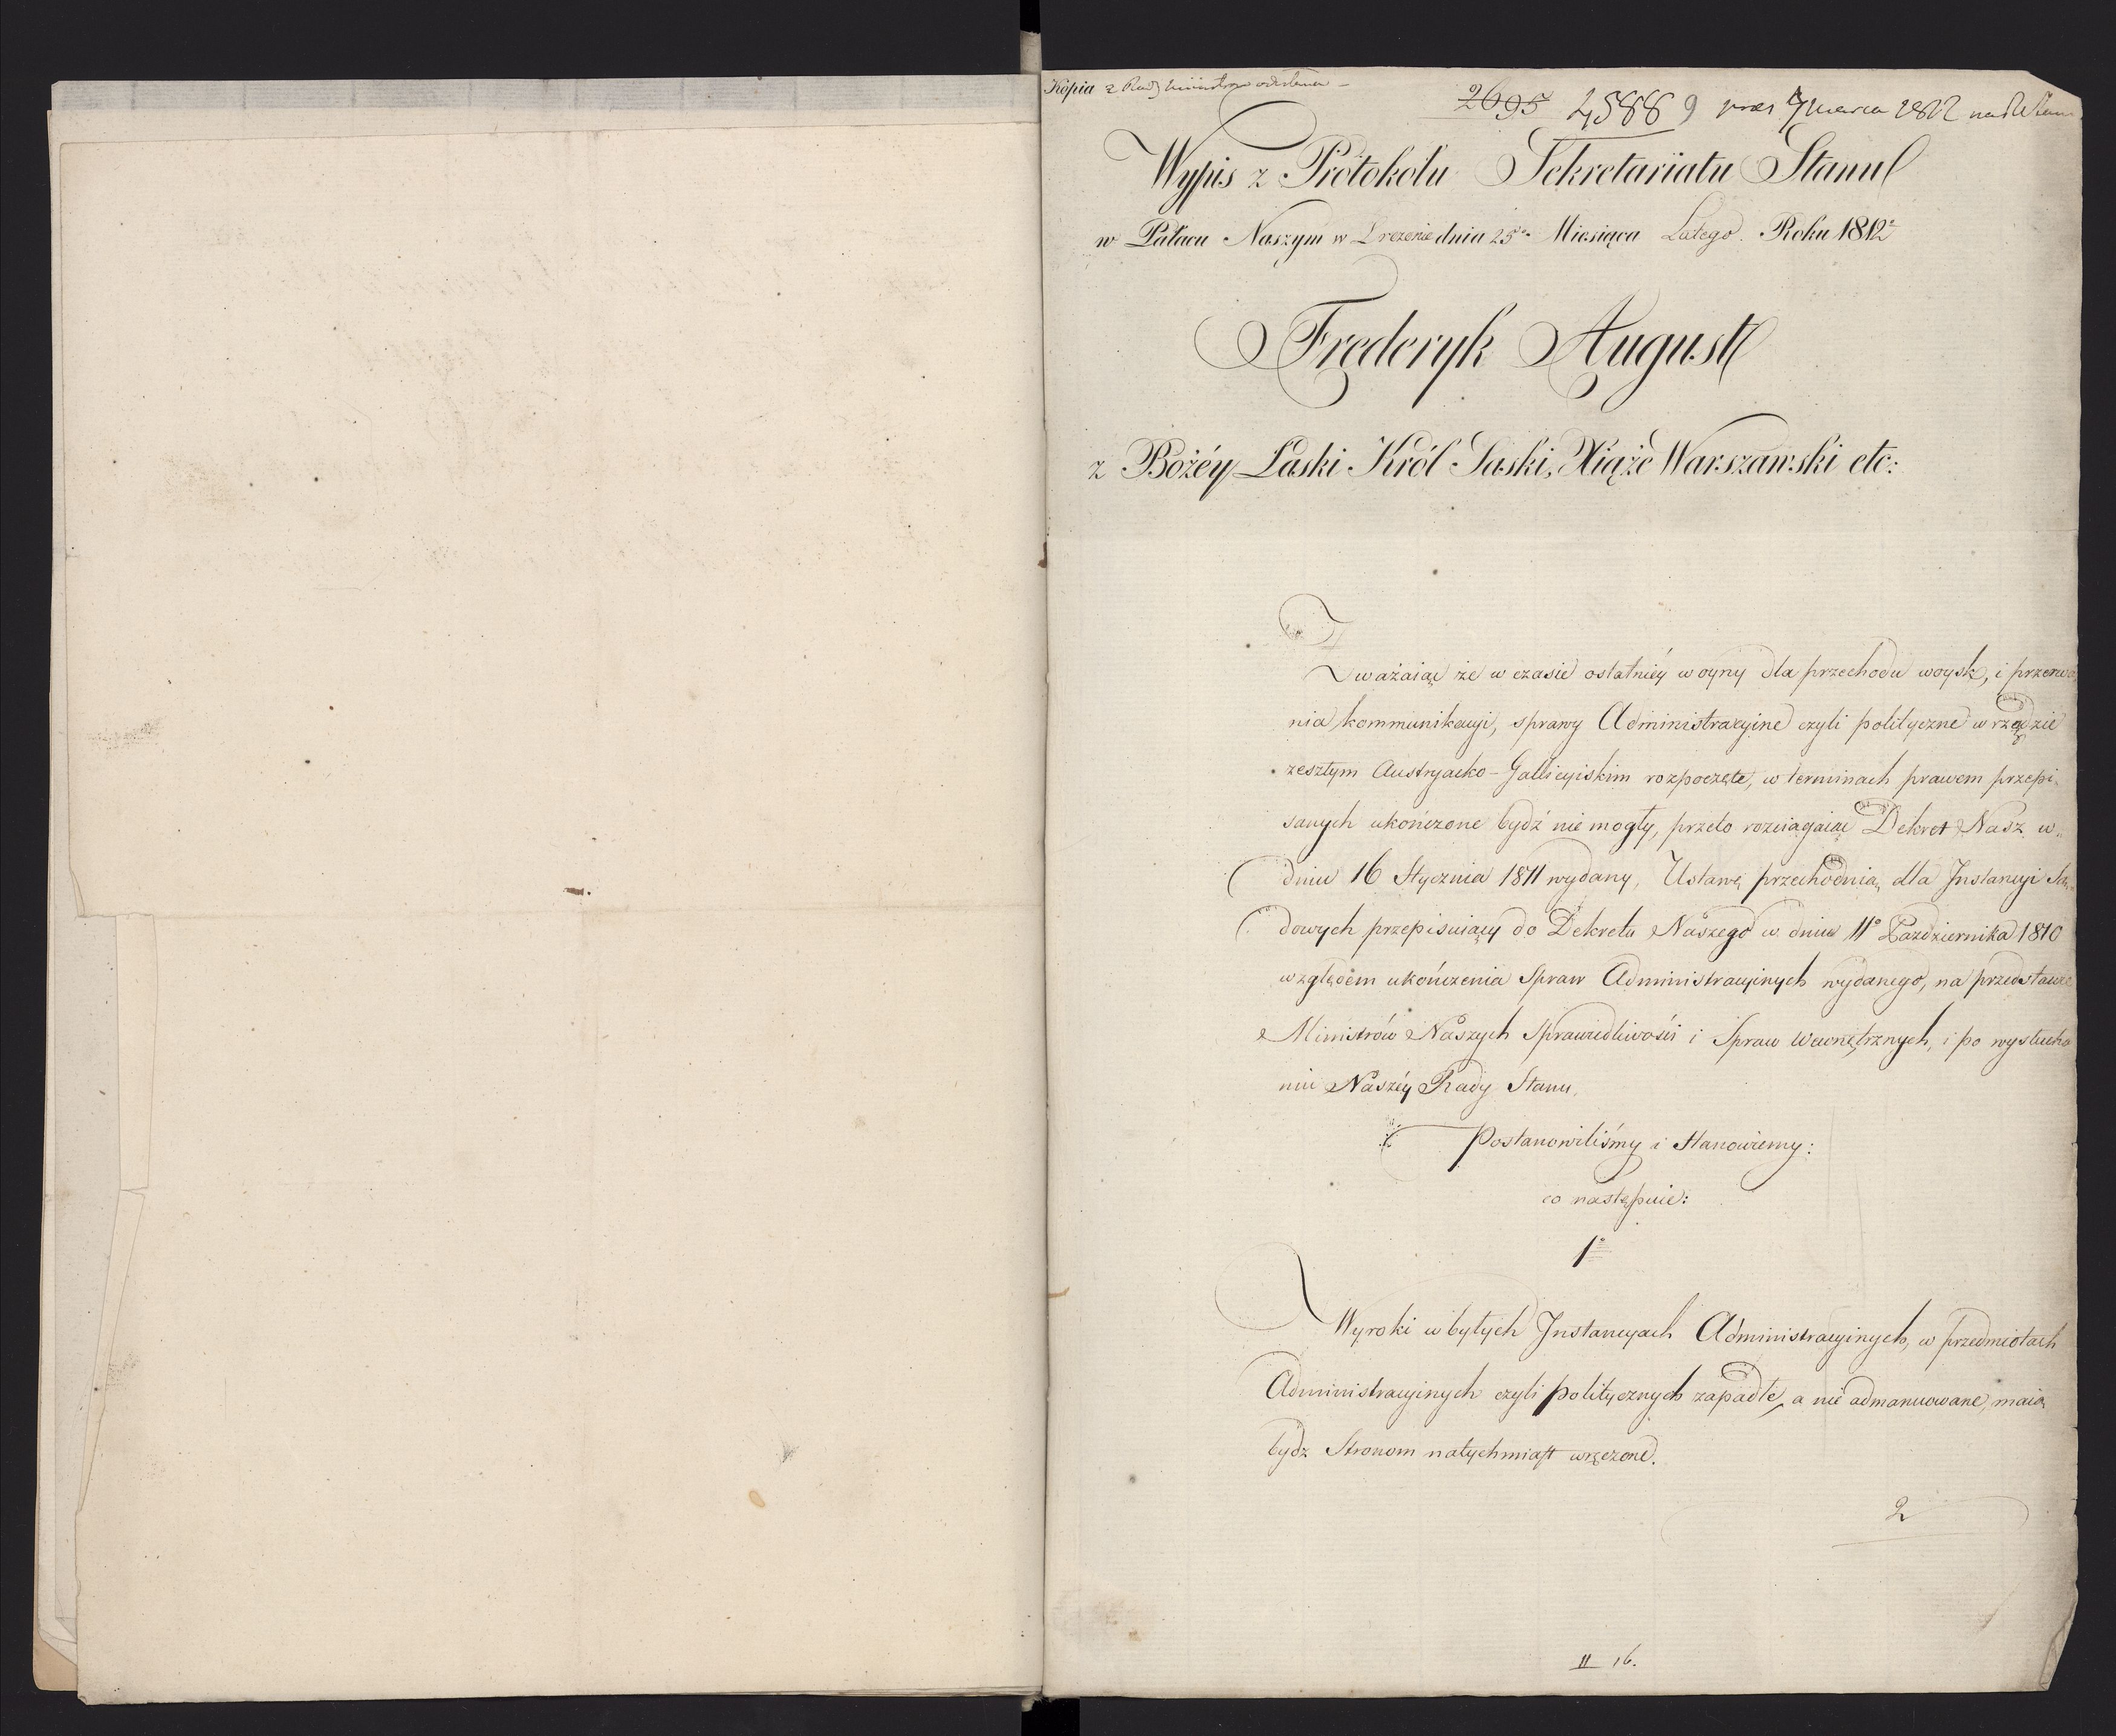 Kopia z Rady
2695 4588 9 pres 7 Marca 1812
Wypis z Protokołu Sekretariatu Stanu
w Pałacu Naszym w Dreznie dnia 25go Miesiąca Lutego Roku 1812o
Frederyk August
z Bożéy Łaski Król Saski, Xiąże Warszawski etc:
Zważaiąc że w czasie ostatniéy woyny dla przechodu woysk, i przerwa,
nia kommunikacyi, sprawy Administracyine czyli polityczne w rządzie
zeszłym Austryacko-Gallicyiskim rozpoczęte, w terminach prawem przepi,
sanych ukończone bydź nie mogły, przeto rozciągaiąc Dekret Nasz w
dniu 16 Stycznia 1811 wydany, Ustawę przechodnią dla Instancyi Są,
dowych przepisuiący do Dekretu Naszego w dniu 11o Października 1810
względem ukończenia Spraw Administracyinych wydanego, na przedstawie
Ministrów Naszych Sprawiedliwości i Spraw Wewnętrznych, i po wysłucha
niu Naszéy Rady Stanu,
Postanowiliśmy i Stanowiemy:
co następuie:
1o
Wyroki w byłych Instancyach Administracyinych, w przedmiotach
Administracyinych czyli politycznych zapadłe, a nie admanuowane, maią
bydz Stronom natychmiast wręczone.
2
II 16.